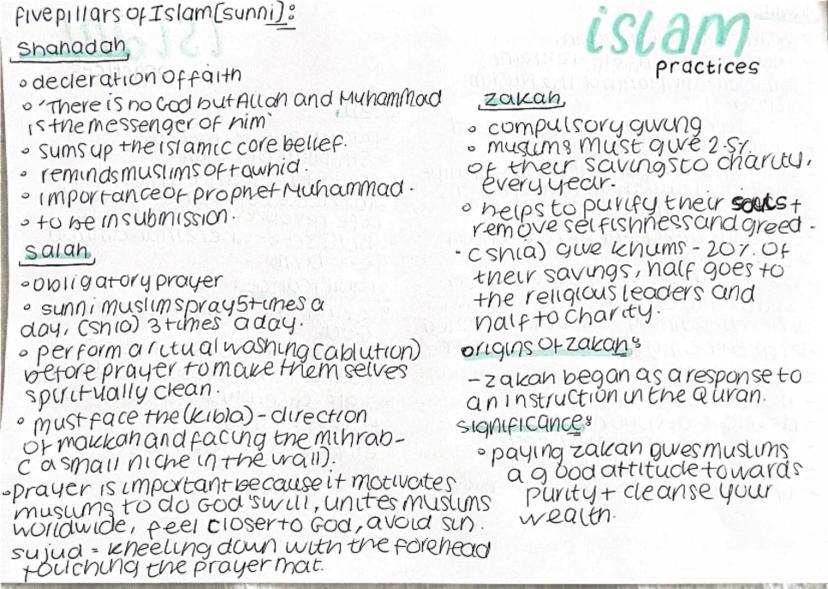 five pillars of Islam [sunni]:
Shahadah
• decleration of faith
• 'There is no God but Allah and Muhammad
is the messenger of him'
• sums up the islamic core belief.
• reminds muslims of tawhid.
• importance of prophet Muhammad.
• to be in submission.
salah
• obligatory prayer
• sunni muslims pray 5 times a
day, (shia) 3 times a day.
• perform a ritual washing (ablution)
before prayer to make them selves
spiritually clean.
• must face the (kibla) - direction
of makkah and facing the mihrab -
(a small niche in the wall).
• prayer is important because it motivates
muslims to do God's will, unites muslims
worldwide, feel closer to God, avoid sin.
sujud = kneeling down with the forehead
touching the prayer mat.
islam
practices
zakah
• compulsory giving
• muslims must give 2.5%
of their savings to charity,
every year.
• helps to purify their souls +
remove selfishness and greed.
• (shia) give khums - 20% of
their savings, half goes to
the religious leaders and
half to charity.
origins of zakah:
- zakah began as a response to
an instruction in the Quran.
significance:
• paying zakah gives muslims
a good attitude towards
purity + cleanse your
wealth.